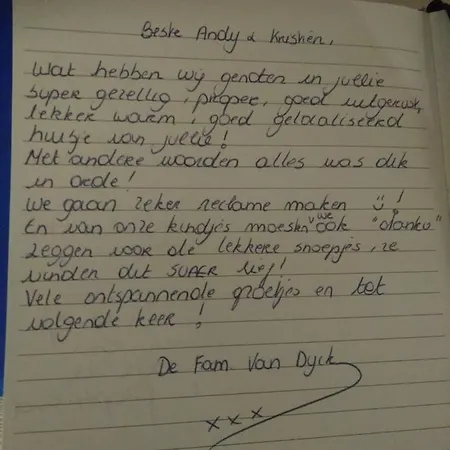 Beste Andy & Kristien,
Wat hebben wij genoten in jullie
super gezellig, proper, goed uitgerust,
lekker warm, goed gelocaliseerd
huisje van jullie!
Met andere woorden alles was dik
in orde!
We gaan zeker reclame maken ☺!
En van onze kindjes moesten we ook "dankü"
zeggen voor de lekkere snoepjes, ze
vinden dit SUPER lief!
Vele ontspannende groetjes en tot
volgende keer!
De Fam. Van Dyck
x x x